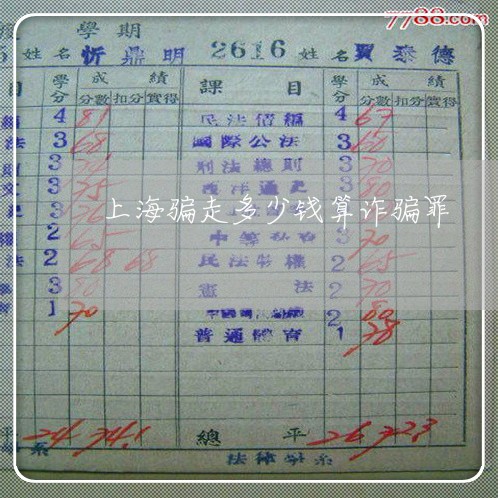 7788.com
學期
姓名 忻鼎明 2616 姓名 賈泰德
目 學分 成績 課目 學分 成績
分數 扣分 實得 分數 扣分 實得
4 81 民法債編 4 67
法 3 68 國際公法 3 60
則 3 刑法總則 3 70
文 3 75 西洋通史 3 80
上海骗走多少钱算诈骗罪
2 65 3 70
法 2 68 68 民法物權 2 65
3 80 憲法 2 70
1 70 2 80
普通體育 1 78
平 24 74.1 總平 26 72.3
系 法律學系